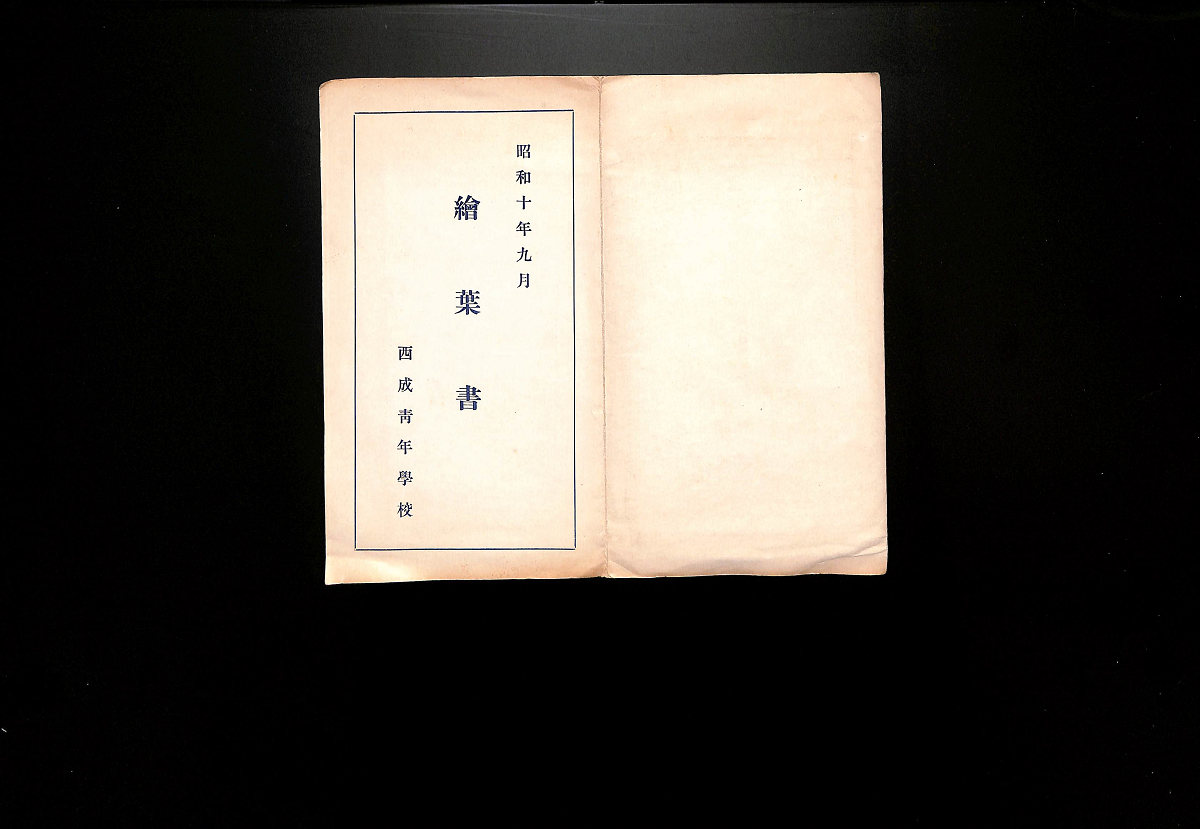 昭和十年九月
繪葉書
西成靑年學校